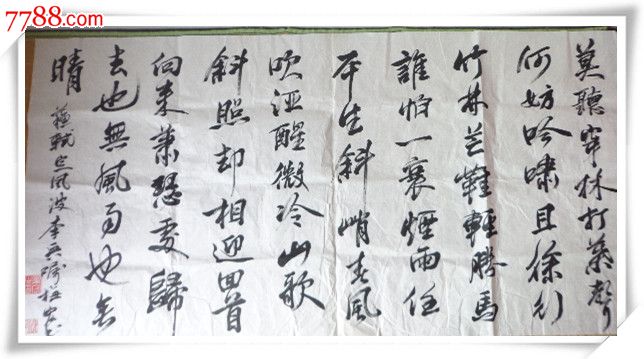 7788.com
莫聽穿林打葉聲
何妨吟嘯且徐行
竹林芒鞋輕勝馬
誰怕一蓑煙雨任
平生斜峭春風
吹酒醒微冷山歌
斜照却相迎回首
向来蕭瑟處歸
去也無風雨也無
晴
蘇軾定風波